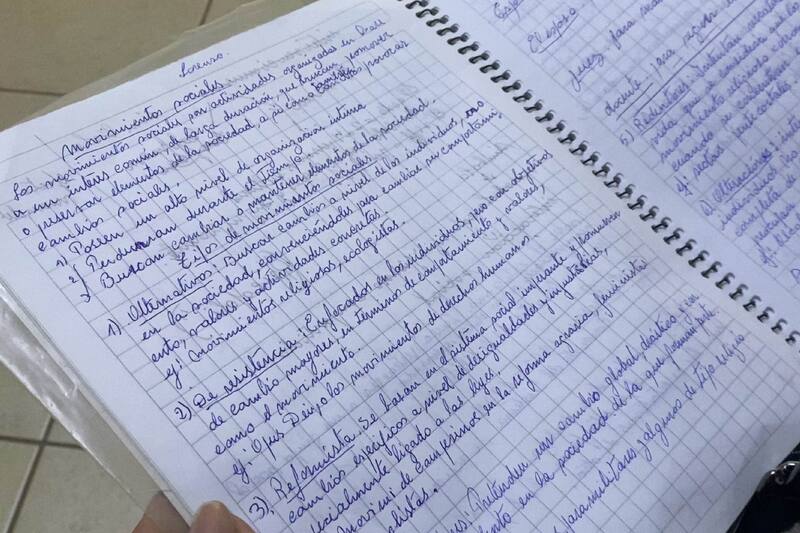 Lorenzo.
Movimientos sociales
Los movimientos sociales son actividades organizadas en base
a un interes comun, de larga duración, que buscan promover
o preservar elementos de la sociedad, a si como provocar
cambios sociales.
1) Poseen un alto nivel de organizacion interna
2) Perduran durante el tiempo
3) Buscan cambiar o mantener elementos de la sociedad.
Tipos de movimientos sociales
1) Alternativos: Buscan cambios a nivel de los individuos, no
en la sociedad, convenciendolos para cambiar su comportami
ento, valores y actividades concretas.
ej: Movimientos religiosos, ecologistas.
2) De resistencia: Enfocados en los individuos, pero con objetivos
de cambio mayores, en terminos de comportamiento y valores,
como el movimiento.
ej: Opus Dei, o los movimientos de derechos humanos
3) Reformista: Se basan en el sistema social imperante y promueven
cambios especificos a nivel de desigualdades y injusticias,
cialmente ligado a las leyes.
Movimi de Campesinos en la reforma agraria, feminista
listas.
Pretenden un cambio global, drastico y
en la sociedad a la que forman parte.
paramilitares y algunos de tipo religio
El esposo
juez para
docente para
5) Redentores: Intentan
movimiento religioso
cuando se
ej: sectas, protestantes
6)
individuos
completa